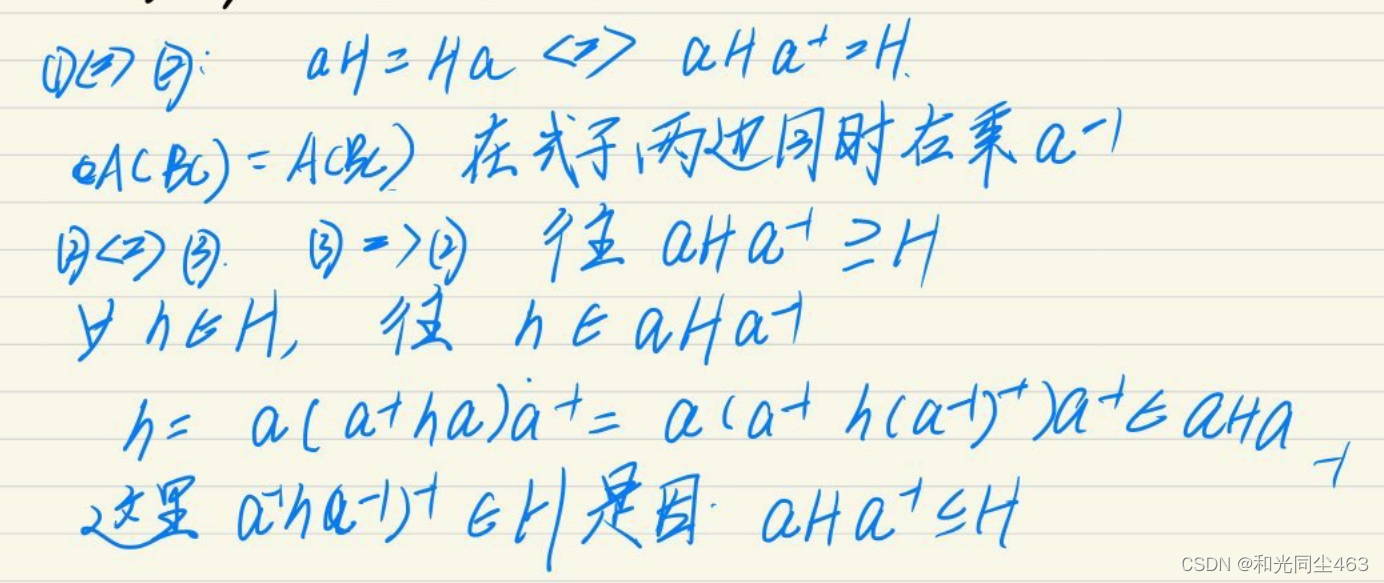 ①<=> ②: aH = Ha <=> aHa⁻¹ = H.
A(BC) = A(BC) 在式子两边同时右乘 a⁻¹
②<=> ③. ③ => ② 往 aHa⁻¹ ⊇ H
∀ h∈H, 往 h ∈ aHa⁻¹
h = a(a⁻¹ha)a⁻¹ = a(a⁻¹h(a⁻¹)⁻¹)a⁻¹ ∈ aHa⁻¹
这里 a⁻¹h(a⁻¹)⁻¹ ∈ H 是因. aHa⁻¹ ⊆ H
CSDN @和光同尘463